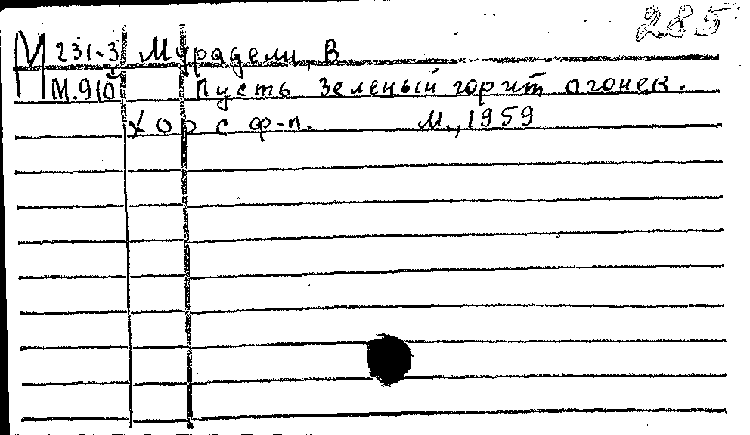 285
М 231-3 Мурадели, В
М.910 Пусть зеленый горит огонек.
Хор с ф-п. М., 1959